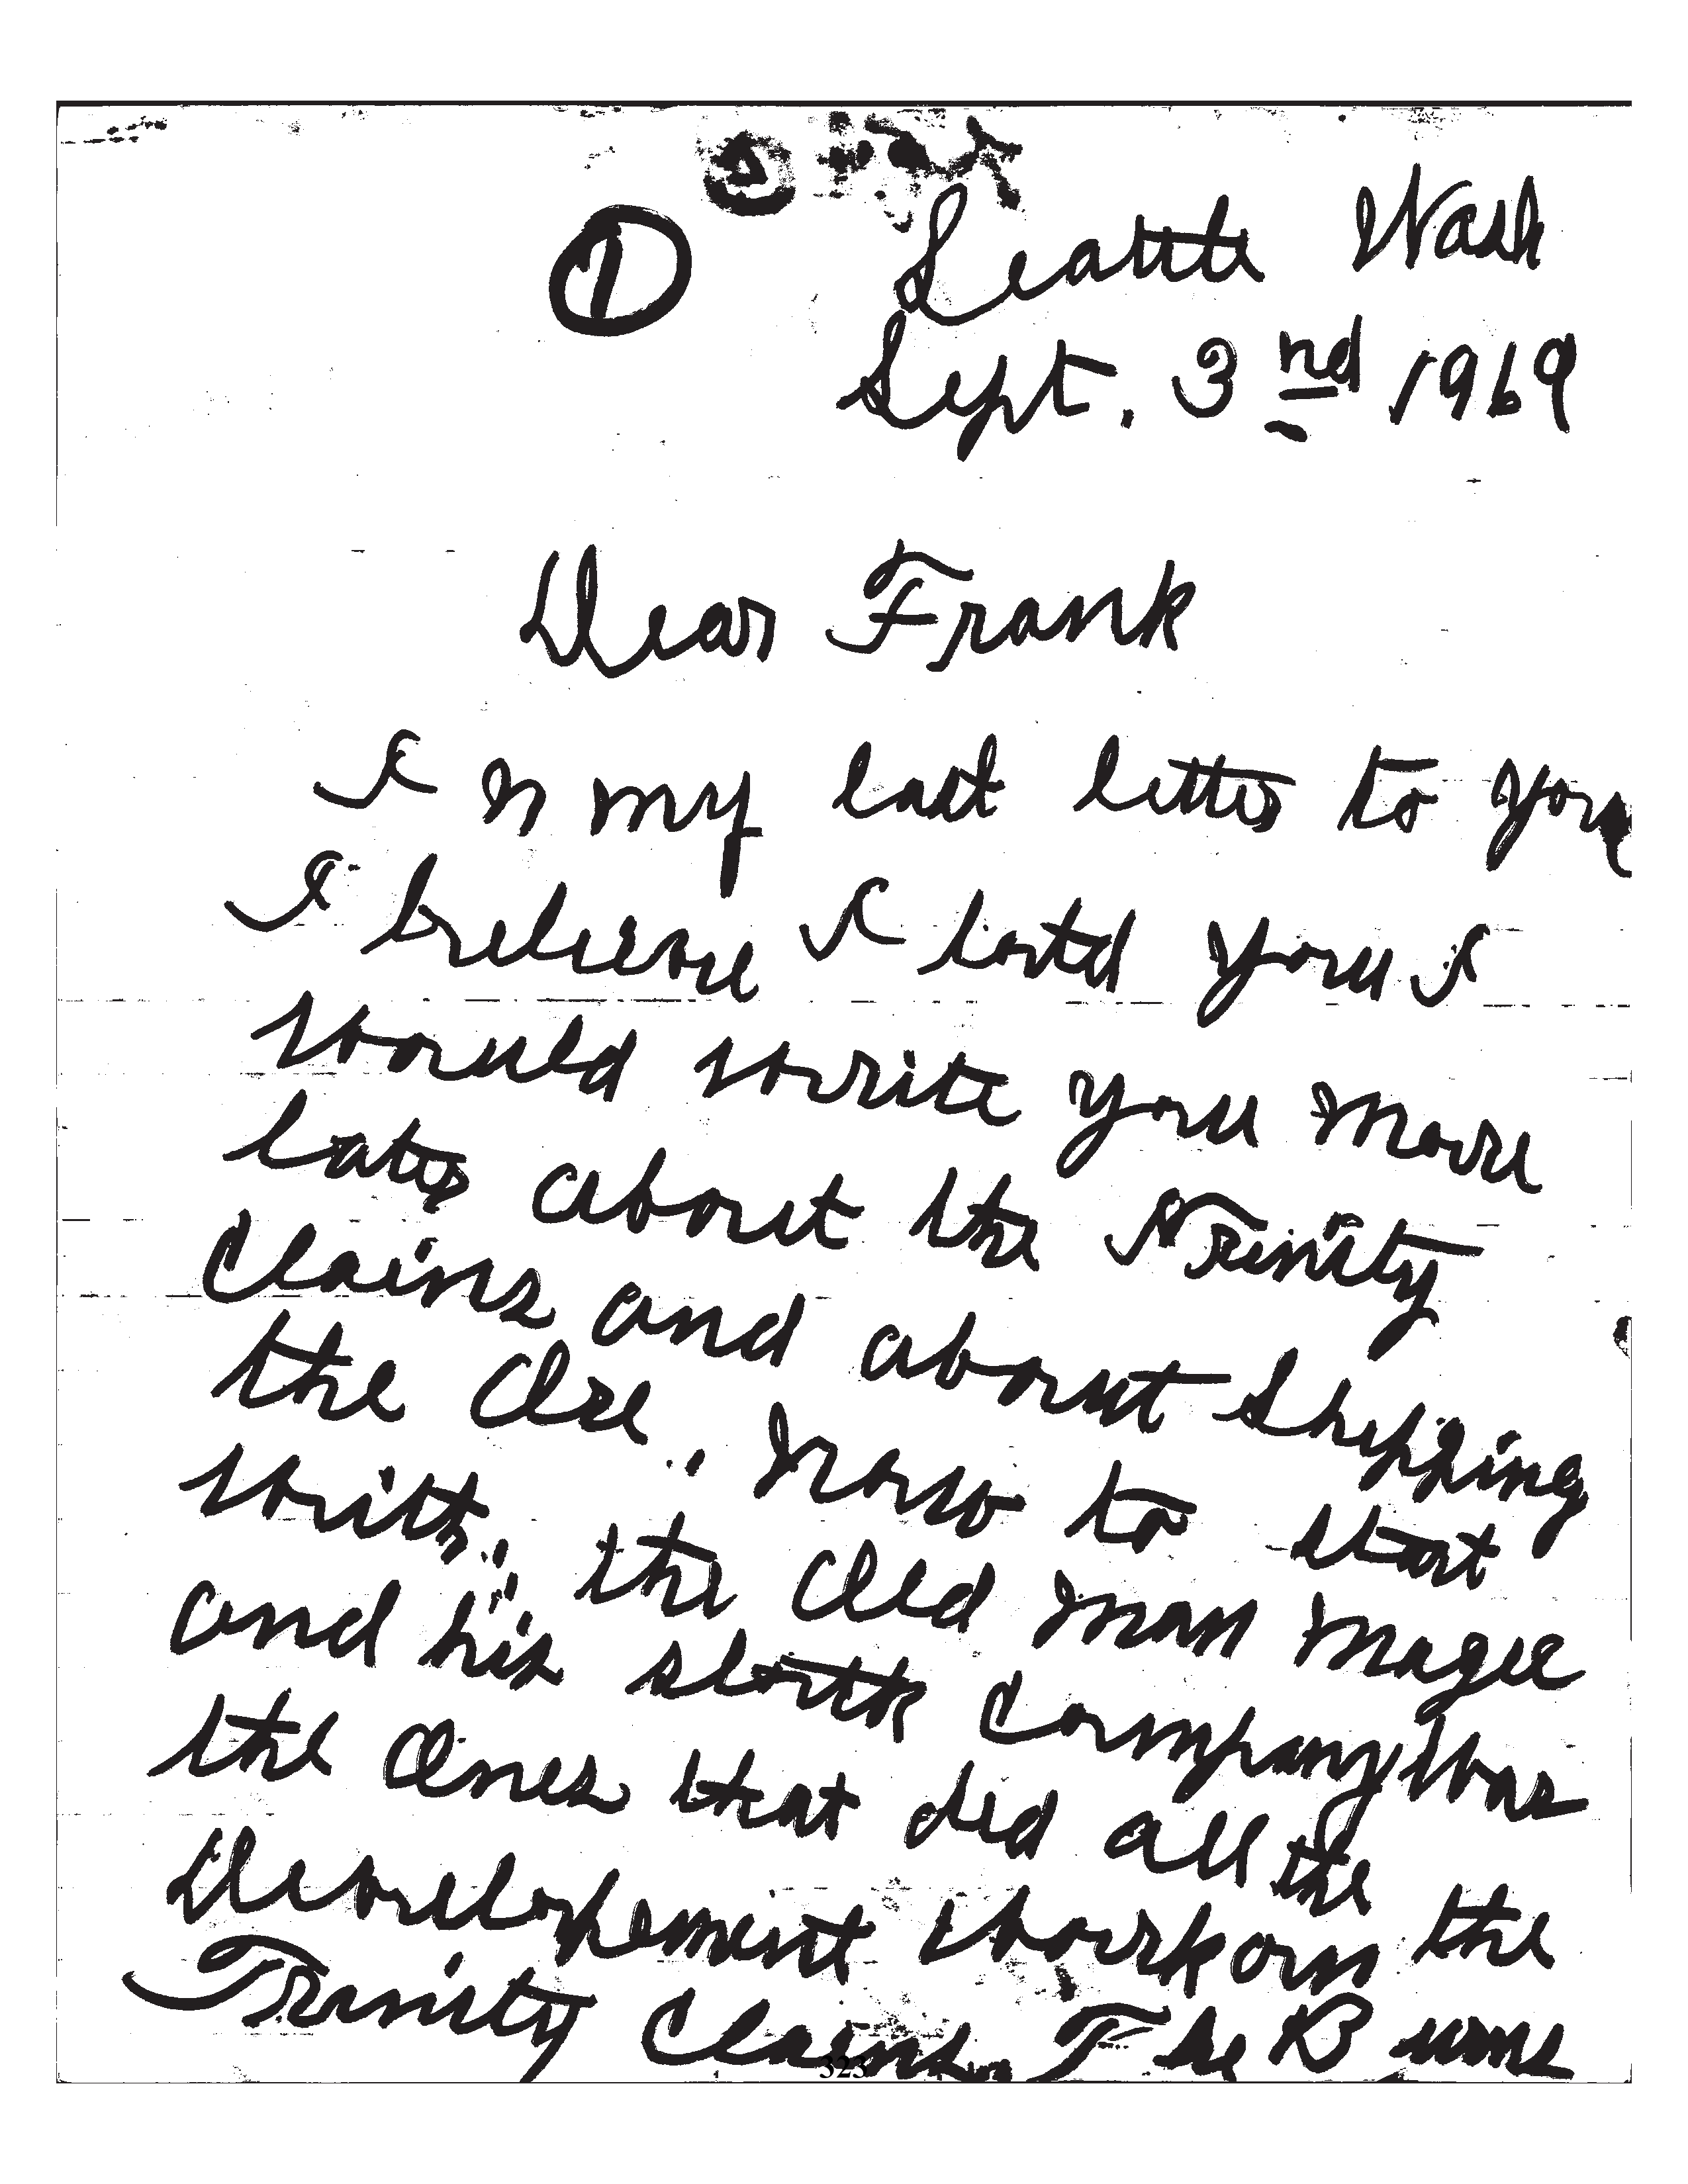 ①
Seattle Wash
Sept. 3nd 1969
Dear Frank
In my last letter to you
I believe I told you I
would write you more
later about the Trinity
Clains and about shipping
the Ore, now to start
with, the Old man Magee
and his stock Company was
the Ones that did all the
Developement work on the
Trinity Clains The Burns
323